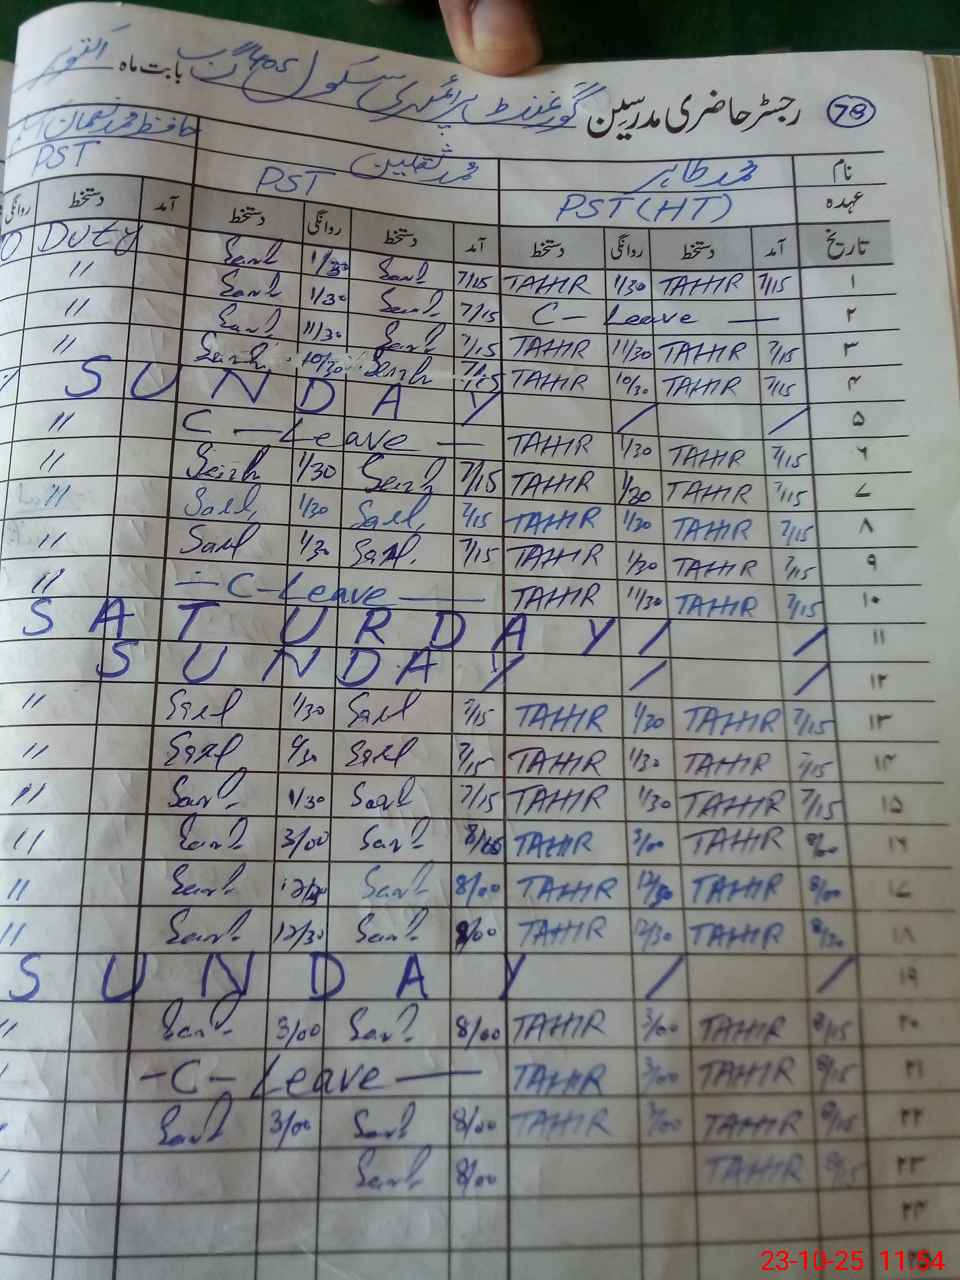 78 رجسٹر حاضری مدرسین گورنمنٹ پرائمری سکول 405 گ ب بابت ماہ اکتوبر
نام محمد طاہر محمد ثقلین حافظ محمد نعمان
عہدہ PST (HT) PST PST
تاریخ آمد دستخط روانگی دستخط آمد دستخط روانگی دستخط آمد دستخط روانگی
۱ 7/15 TAHIR 1/30 TAHIR 7/15 1/30 Duty
۲ C- Leave — 7/15 1/30 "
۳ 7/15 TAHIR 11/30 TAHIR 7/15 11/30 "
۴ 7/15 TAHIR 10/30 TAHIR 7/15 10/30 "
۵ SUNDAY / /
۶ 7/15 TAHIR 1/30 TAHIR C — Leave — "
۷ 7/15 TAHIR 1/30 TAHIR 7/15 1/30 "
۸ 7/15 TAHIR 1/30 TAHIR 7/15 1/30 "
۹ 7/15 TAHIR 1/30 TAHIR 7/15 1/30 "
۱۰ 7/15 TAHIR 11/30 TAHIR — C-Leave — "
۱۱ SATURDAY / /
۱۲ SUNDAY / /
۱۳ 7/15 TAHIR 1/30 TAHIR 7/15 1/30 "
۱۴ 7/15 TAHIR 1/30 TAHIR 7/15 1/30 "
۱۵ 7/15 TAHIR 1/30 TAHIR 7/15 1/30 "
۱۶ TAHIR 3/00 TAHIR 3/00 "
۱۷ 8/00 TAHIR 12/30 TAHIR 8/00 "
۱۸ 8/30 TAHIR 12/30 TAHIR 8/00 12/30 "
۱۹ SUNDAY / /
۲۰ 8/15 TAHIR 3/00 TAHIR 8/00 3/00 "
۲۱ 8/15 TAHIR 3/00 TAHIR — C — Leave —
۲۲ 8/15 TAHIR 3/00 TAHIR 8/00 3/00
۲۳ 8/15 TAHIR 8/00
۲۴
23-10-25 11:54